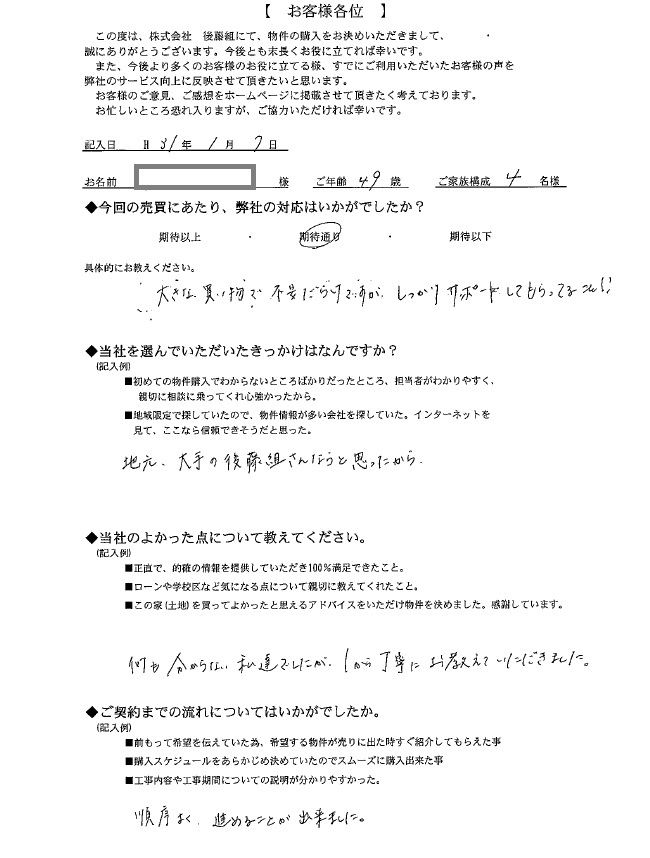 【 お客様各位 】
この度は、株式会社 後藤組にて、物件の購入をお決めいただきまして、
誠にありがとうございます。今後とも末長くお役に立てれば幸いです。
また、今後より多くのお客様のお役に立てる様、すでにご利用いただいたお客様の声を
弊社のサービス向上に反映させて頂きたいと思います。
お客様のご意見、ご感想をホームページに掲載させて頂きたく考えております。
お忙しいところ恐れ入りますが、ご協力いただければ幸いです。
記入日 H 31年 1月 7日
お名前 様 ご年齢 49歳 ご家族構成 4名様
◆今回の売買にあたり、弊社の対応はいかがでしたか？
期待以上 ・ 期待通り ・ 期待以下
具体的にお教えください。
大きな買い物で不安だらけですが、しっかりサポートしてもらってること!!
◆当社を選んでいただいたきっかけはなんですか？
(記入例)
■初めての物件購入でわからないところばかりだったところ、担当者がわかりやすく、
親切に相談に乗ってくれ心強かったから。
■地域限定で探していたので、物件情報が多い会社を探していた。インターネットを
見て、ここなら信頼できそうだと思った。
地元、大手の後藤組さんならと思ったから。
◆当社のよかった点について教えてください。
(記入例)
■正直で、的確の情報を提供していただき100％満足できたこと。
■ローンや学校区など気になる点について親切に教えてくれたこと。
■この家(土地)を買ってよかったと思えるアドバイスをいただけ物件を決めました。感謝しています。
何も分からない私達でしたが、1から丁寧にお教えていただきました。
◆ご契約までの流れについてはいかがでしたか。
(記入例)
■前もって希望を伝えていた為、希望する物件が売りに出た時すぐ紹介してもらえた事
■購入スケジュールをあらかじめ決めていたのでスムーズに購入出来た事
■工事内容や工事期間についての説明が分かりやすかった。
順序よく、進めることが出来ました。